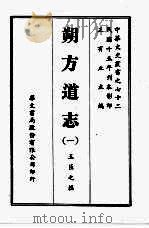 中華文史叢書之七十二
民國十五年刊本影印
王有立主編
朔方道志
(一)
王臣之撰
華文書局股份有限公司印行